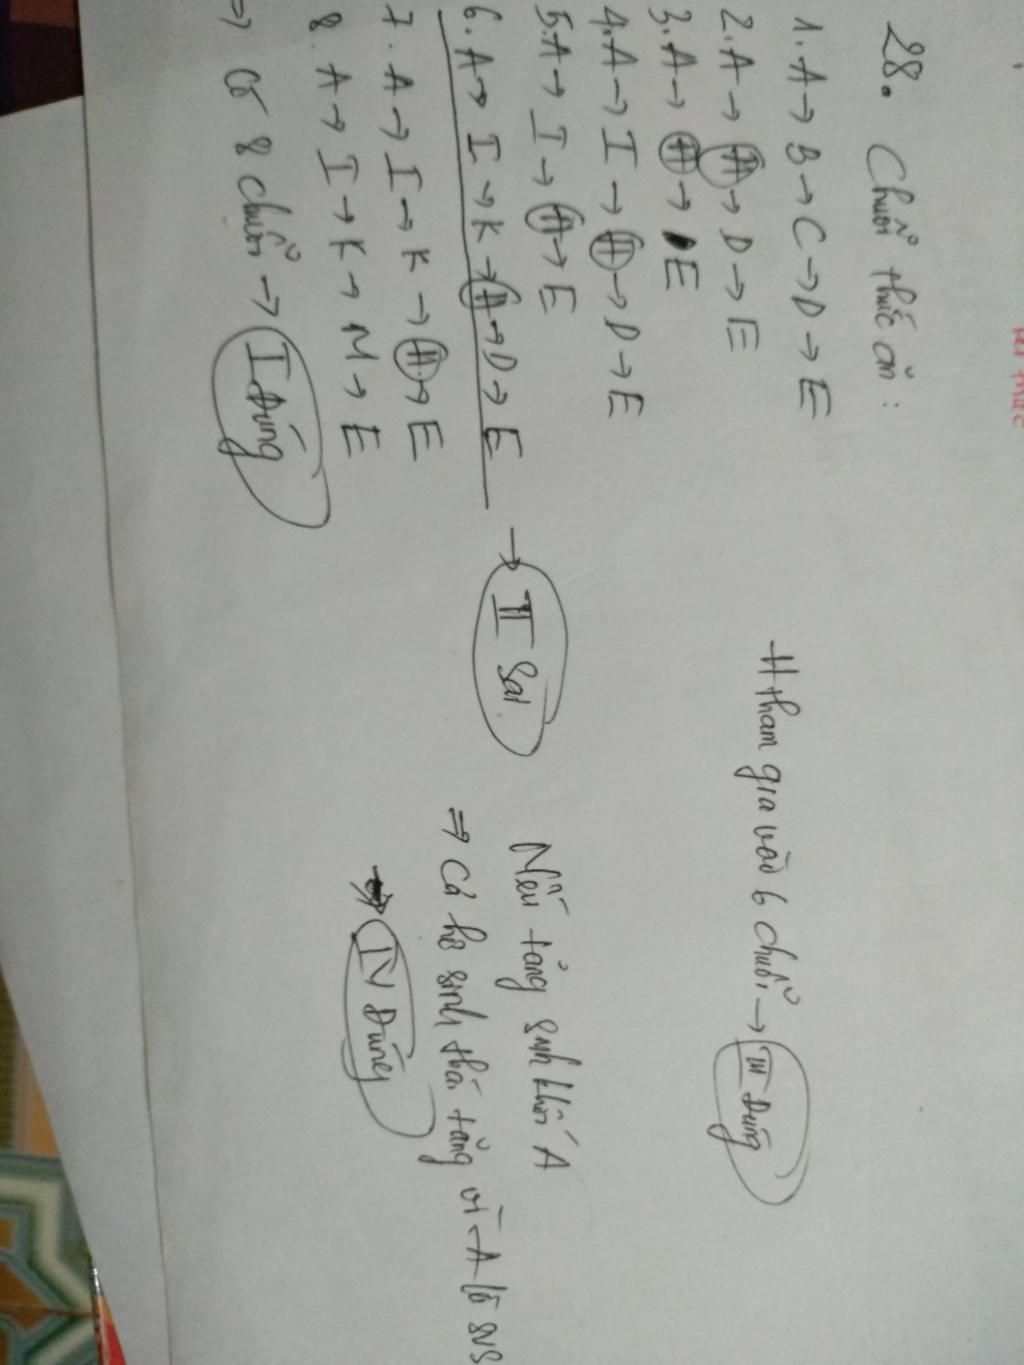 28. Chuỗi thức ăn:
1. A → B → C → D → E
2. A → H → D → E
3. A → H → E
4. A → I → H → D → E
5. A → I → H → E
6. A → I → K → H → D → E
7. A → I → K → H → E
8. A → I → K → M → E
⇒ Có 8 chuỗi → I Đúng
→ II Sai
H tham gia vào 6 chuỗi → III Đúng
Nếu tăng sinh khối A
⇒ Cả hệ sinh thái tăng vì A là SVS
→ IV Đúng